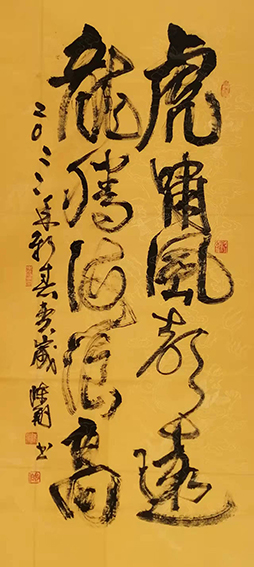 虎嘯風聲遠
龍騰海浪高
二〇二二年新春賀歲
書